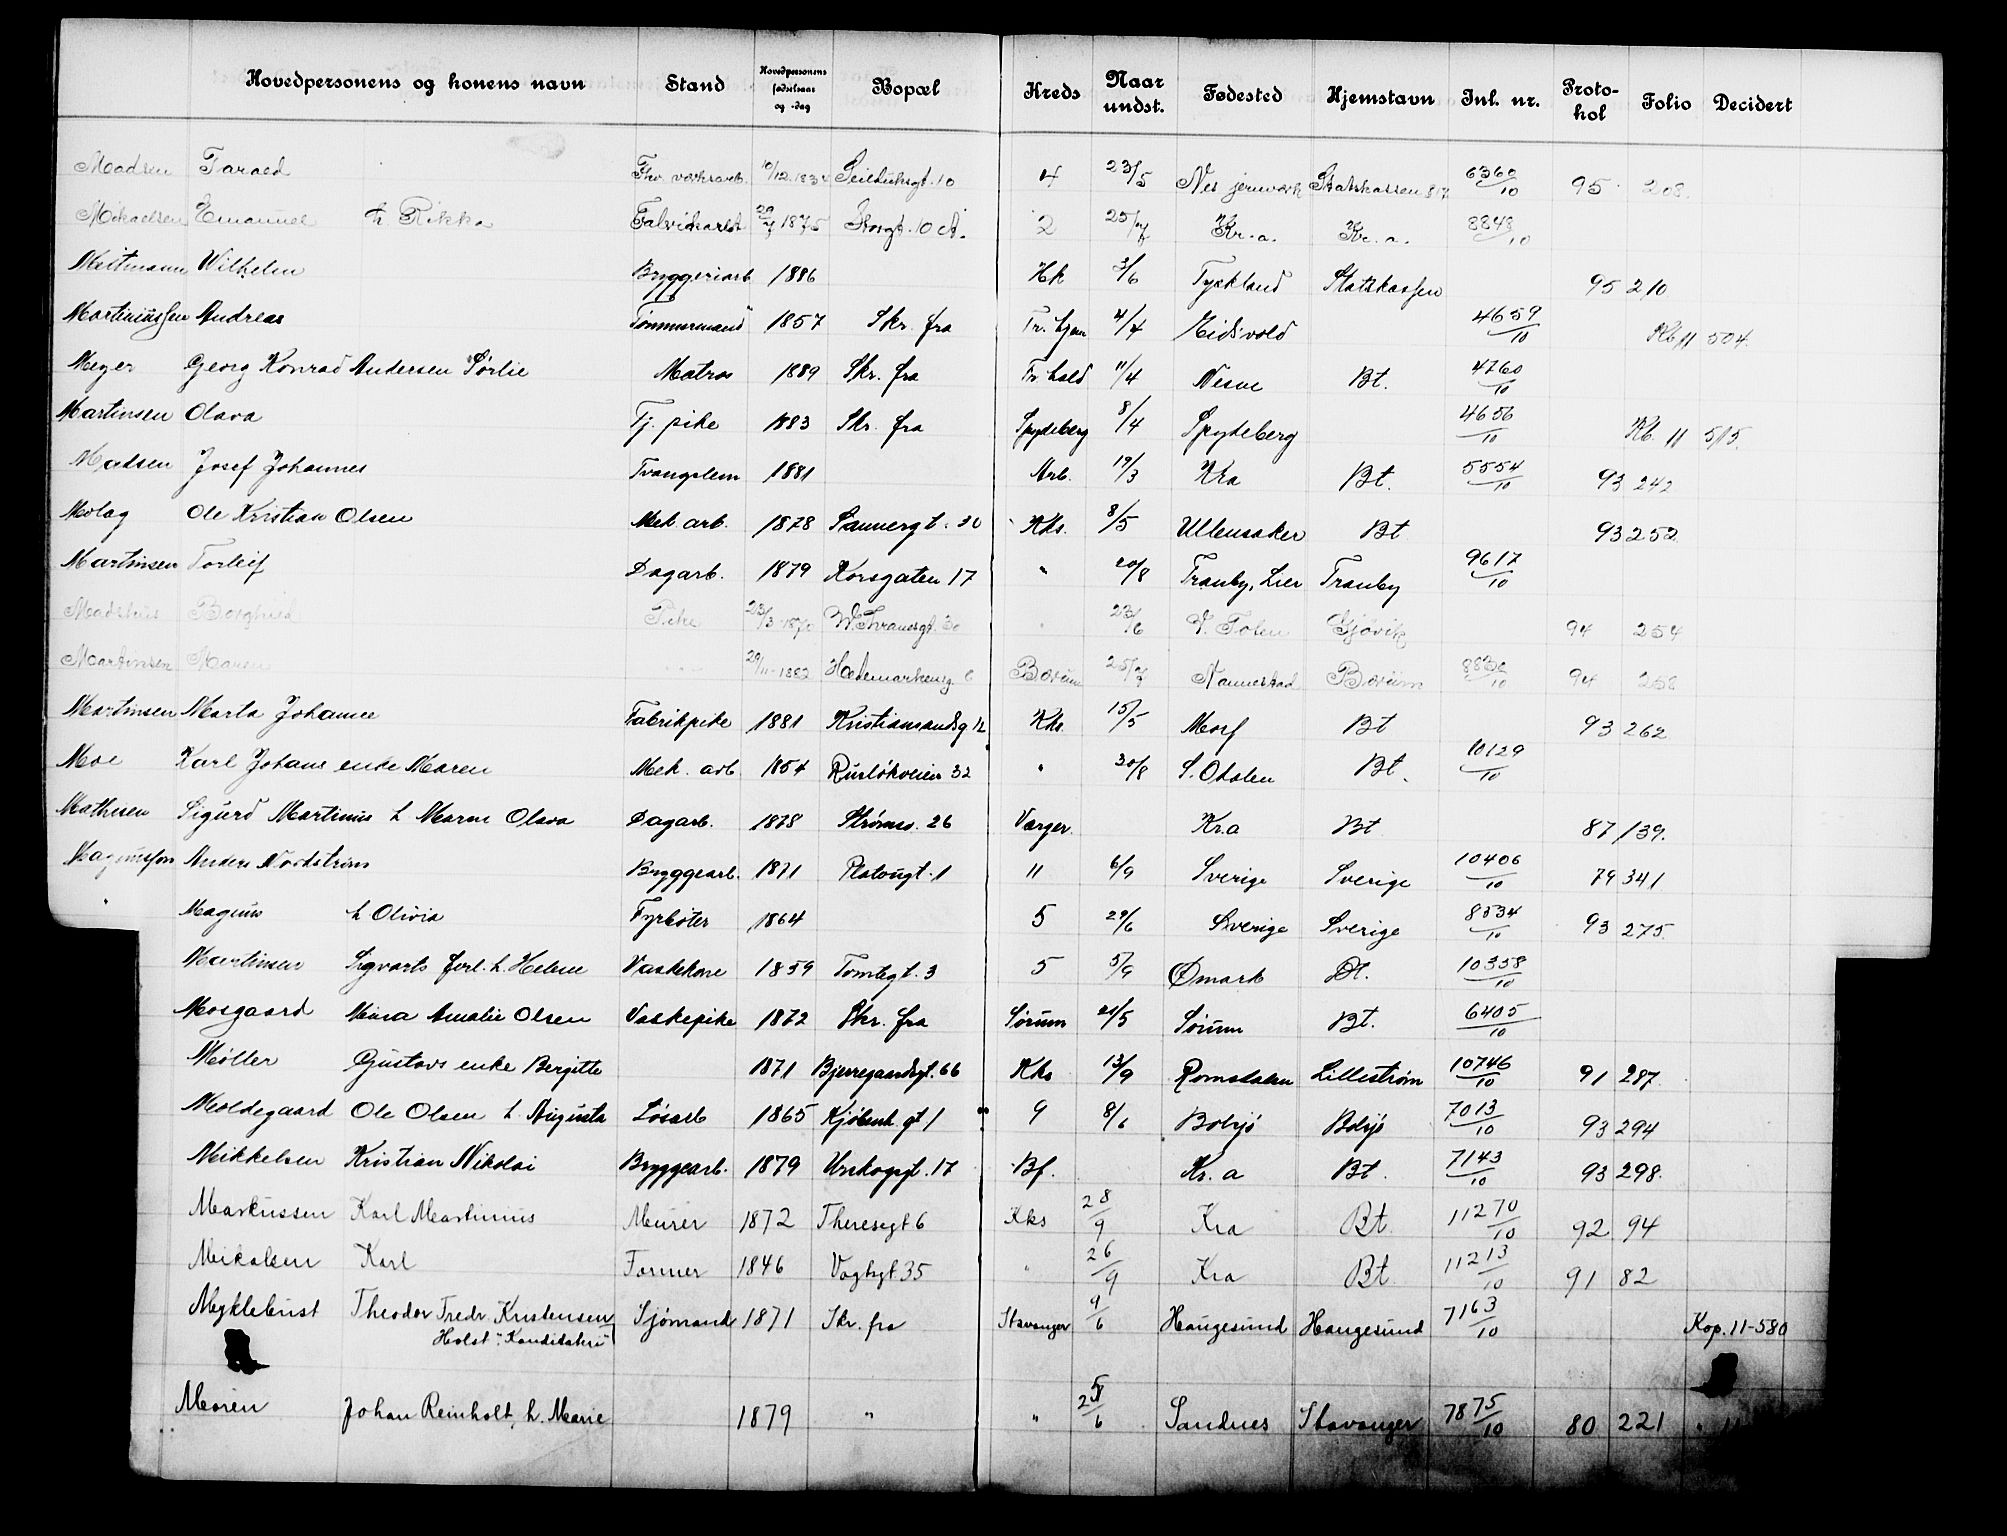 Hovedpersonens og konens navn Stand Hovedpersonens fødselsaar og -dag Bopæl Kreds Naar undst. Fødested Hjemstavn Inl. nr. Proto-kol Folio Decidert
Madsen Tarald Fhv. verksarb. 10/12 1834 Seilduksgt. 10 4 23/5 Nes jernverk Statskassen 6360/10 95 208
Mikaelsen Emanuel h Rikka Fabrikarbt 29/7 1875 Storgt. 10 A. 2 25/7 Kr.a. Kr.a. 8848/10
Wilhelm Bryggeriarb 1886 Hk 3/6 Tyskland Statskassen 95 210
Martiniussen Andreas Tømmermand 1857 Skr. fra 4/4 Eidsvold 4659/10 Kb 11 504.
Meyer Georg Konrad Andersen Sørlie Matros 1889 Skr. fra Fr.hald 11/4 Bt. 4760/10
Martinsen Olava Tj. pike 1883 Skr. fra Spydeberg 8/4 Spydeberg 4656/10 Kb. 11 515.
Madsen Josef Johannes Tvangslem 1881 Arb. 19/3 Kra Bt. 5554/10 93 242
Molag Ole Kristian Olsen Mek. arb. 1878 Sannergt. 30 Kks. 8/5 Ullensaker Bt 93 252
Martinsen Torleif Dagarb. 1879 Korsgaten 17 " 20/8 Tranby, Lier Tranby 9617/10
Madshus Borghild Pike 23/3 1870 W. Thranesgt. 30 " 23/6 V. Toten Gjøvik 94 254
Martinsen Maren 29/11-1882 Hedemarkensg. 6 Bærum 25/7 Nannestad Bærum 94 258
Martinsen Marta Johanne Fabrikpike 1881 Kristiansandsg 12 Kks. 15/5 Bt 93 262
Moe Karl Johans enke Maren Mek. arb 1854 Ruseløkveien 32 " 30/8 S. Odalen Bt. 10129/10
Mathisen Sigurd Martinius h Maren Olava Dagarb. 1878 Strømsv. 26 Varger. Kra Bt 87 139.
Magnusson Anders Nordstrøm Bryggearb. 1871 Platougt. 1 11 6/9 Sverige Sverige 10406/10 79 341
Magnus h Olivia Fyrbøter 1864 5 29/6 Sverige Sverige 8534/10 93 275.
Martinsen Sigvarts forl. h. Helene Vaskekone 1859 Tomtegt. 3 5 5/9 Ømark Bt. 10358/10
Mosgaard Mina Amalie Olsen Vaskepike 1872 Skr. fra Sørum 21/5 Sørum Bt. 6405/10
Møller Gustavs enke Bergitte 1871 Bjerregaardsgt. 66 Kks 13/9 Romsdalen Lillestrøm 10746/10 91 287.
Moldegaard Ole Olsen h. Augusta Løsarb 1865 Kjøbenh. gt 1 9 8/6 Bolsjø Bolsjø 7013/10 93 294
Mikkelsen Kristian Nikolai Bryggearb. 1879 Urskogsgt. 17 Bf. Kr.a Bt. 7143/10 93 298.
Markussen Karl Martinius Murer 1872 Theresegt 6 Kks 28/9 Kra Bt. 11270/10 92 94
Mikalsen Karl Former 1846 Vogtsgt 35 " 26/9 Kra Bt 11213/10 91 82
Myklebust Theodor Fredr. Kristensen Sjømand 1871 Skr. fra Stavanger 9/6 Haugesund Haugesund 7163/10 Kop. 11-580
Holst
Moren Johan Reinholt, h. Marie 1879 " " 25/6 Sandnes Stavanger 7875/10 80 221 " 11